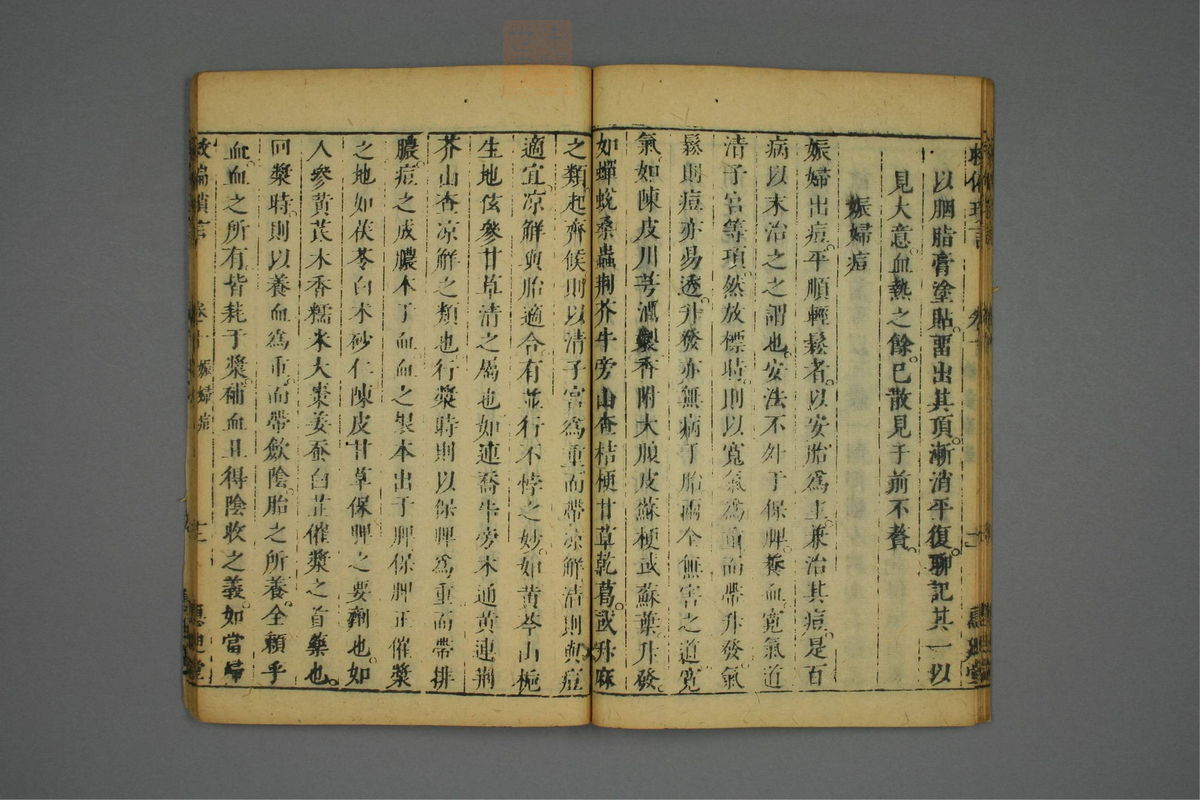 以胭脂膏塗貼留出其頂漸消平復聊記其一以
見大意血熱之餘已散見于前不贅
娠婦痘
娠婦出痘平順輕鬆者以安胎爲主兼治其痘是百
病以末治之之謂也安法不外于保脾養血寬氣道
清子宮等項然放標時則以寬氣爲重而帶升發氣
鬆則痘亦易透升發亦無病于胎兩全無害之道寬
氣如陳皮川芎酒製香附大腹皮蘇梗或蘇葉升發
如蟬蛻桑蟲荆芥牛旁山查桔梗甘草乾葛或升麻
之類起齊候則以清子宮爲重而帶凉解清則與痘
適宜凉解與胎適合有並行不悖之妙如黄芩山梔
生地玄參甘草清之屬也如連喬牛旁木通黄連荆
芥山查凉解之類也行漿時則以保脾爲重而帶排
膿痘之成膿本于血血之製本出于脾保脾正催漿
之地如茯苓白术砂仁陳皮甘草保脾之要劑也如
人參黄芪木香糯米大棗姜蚕白芷催漿之首藥也
囘漿時則以養血爲重而帶歛陰胎之所養全賴乎
血血之所有皆耗于漿補血且得陰收之義如當歸
救偏瑣言 卷十 娠婦痘 十二 惠迪堂